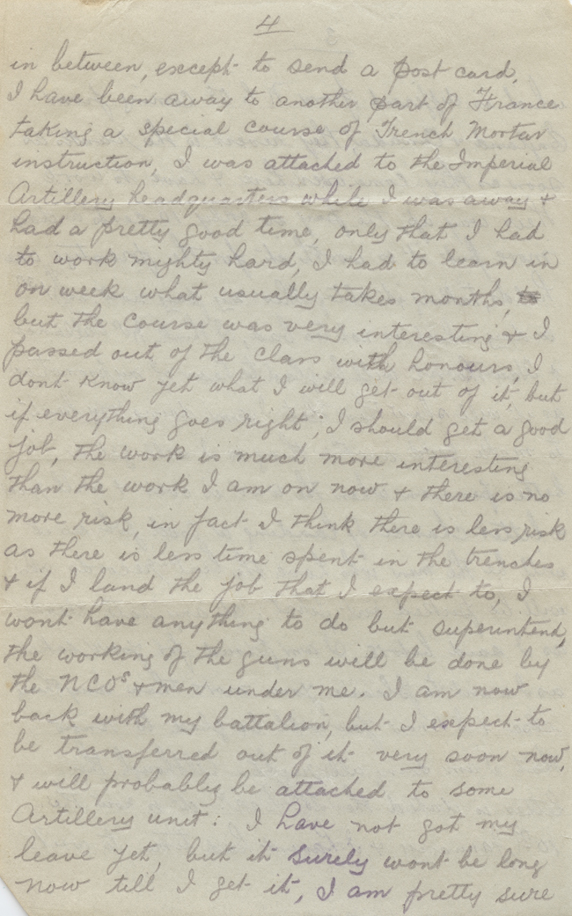 4
in between, except to send a post card.
I have been away to another part of France
taking a special course of Trench Mortar
instruction, I was attached to the Imperial
Artillery headquarters while I was away +
had a pretty good time, only that I had
to work mighty hard, I had to learn in
on week what usually takes months, to
but the course was very interesting + I
passed out of the class with honours, I
dont know yet what I will get out of it, but
if everything goes right, I should get a good
job, the work is much more interesting
than the work I am on now + there is no
more risk, in fact I think there is less risk
as there is less time spent in the trenches
+ if I land the job that I expect to, I
wont have anything to do but superintend,
the working of the guns will be done by
the NCOs + men under me. I am now
back with my battalion, but I expect to
be transferred out of it very soon now,
+ will probably be attached to some
Artillery unit: I have not got my
leave yet, but it surely wont be long
now till I get it, I am pretty sure